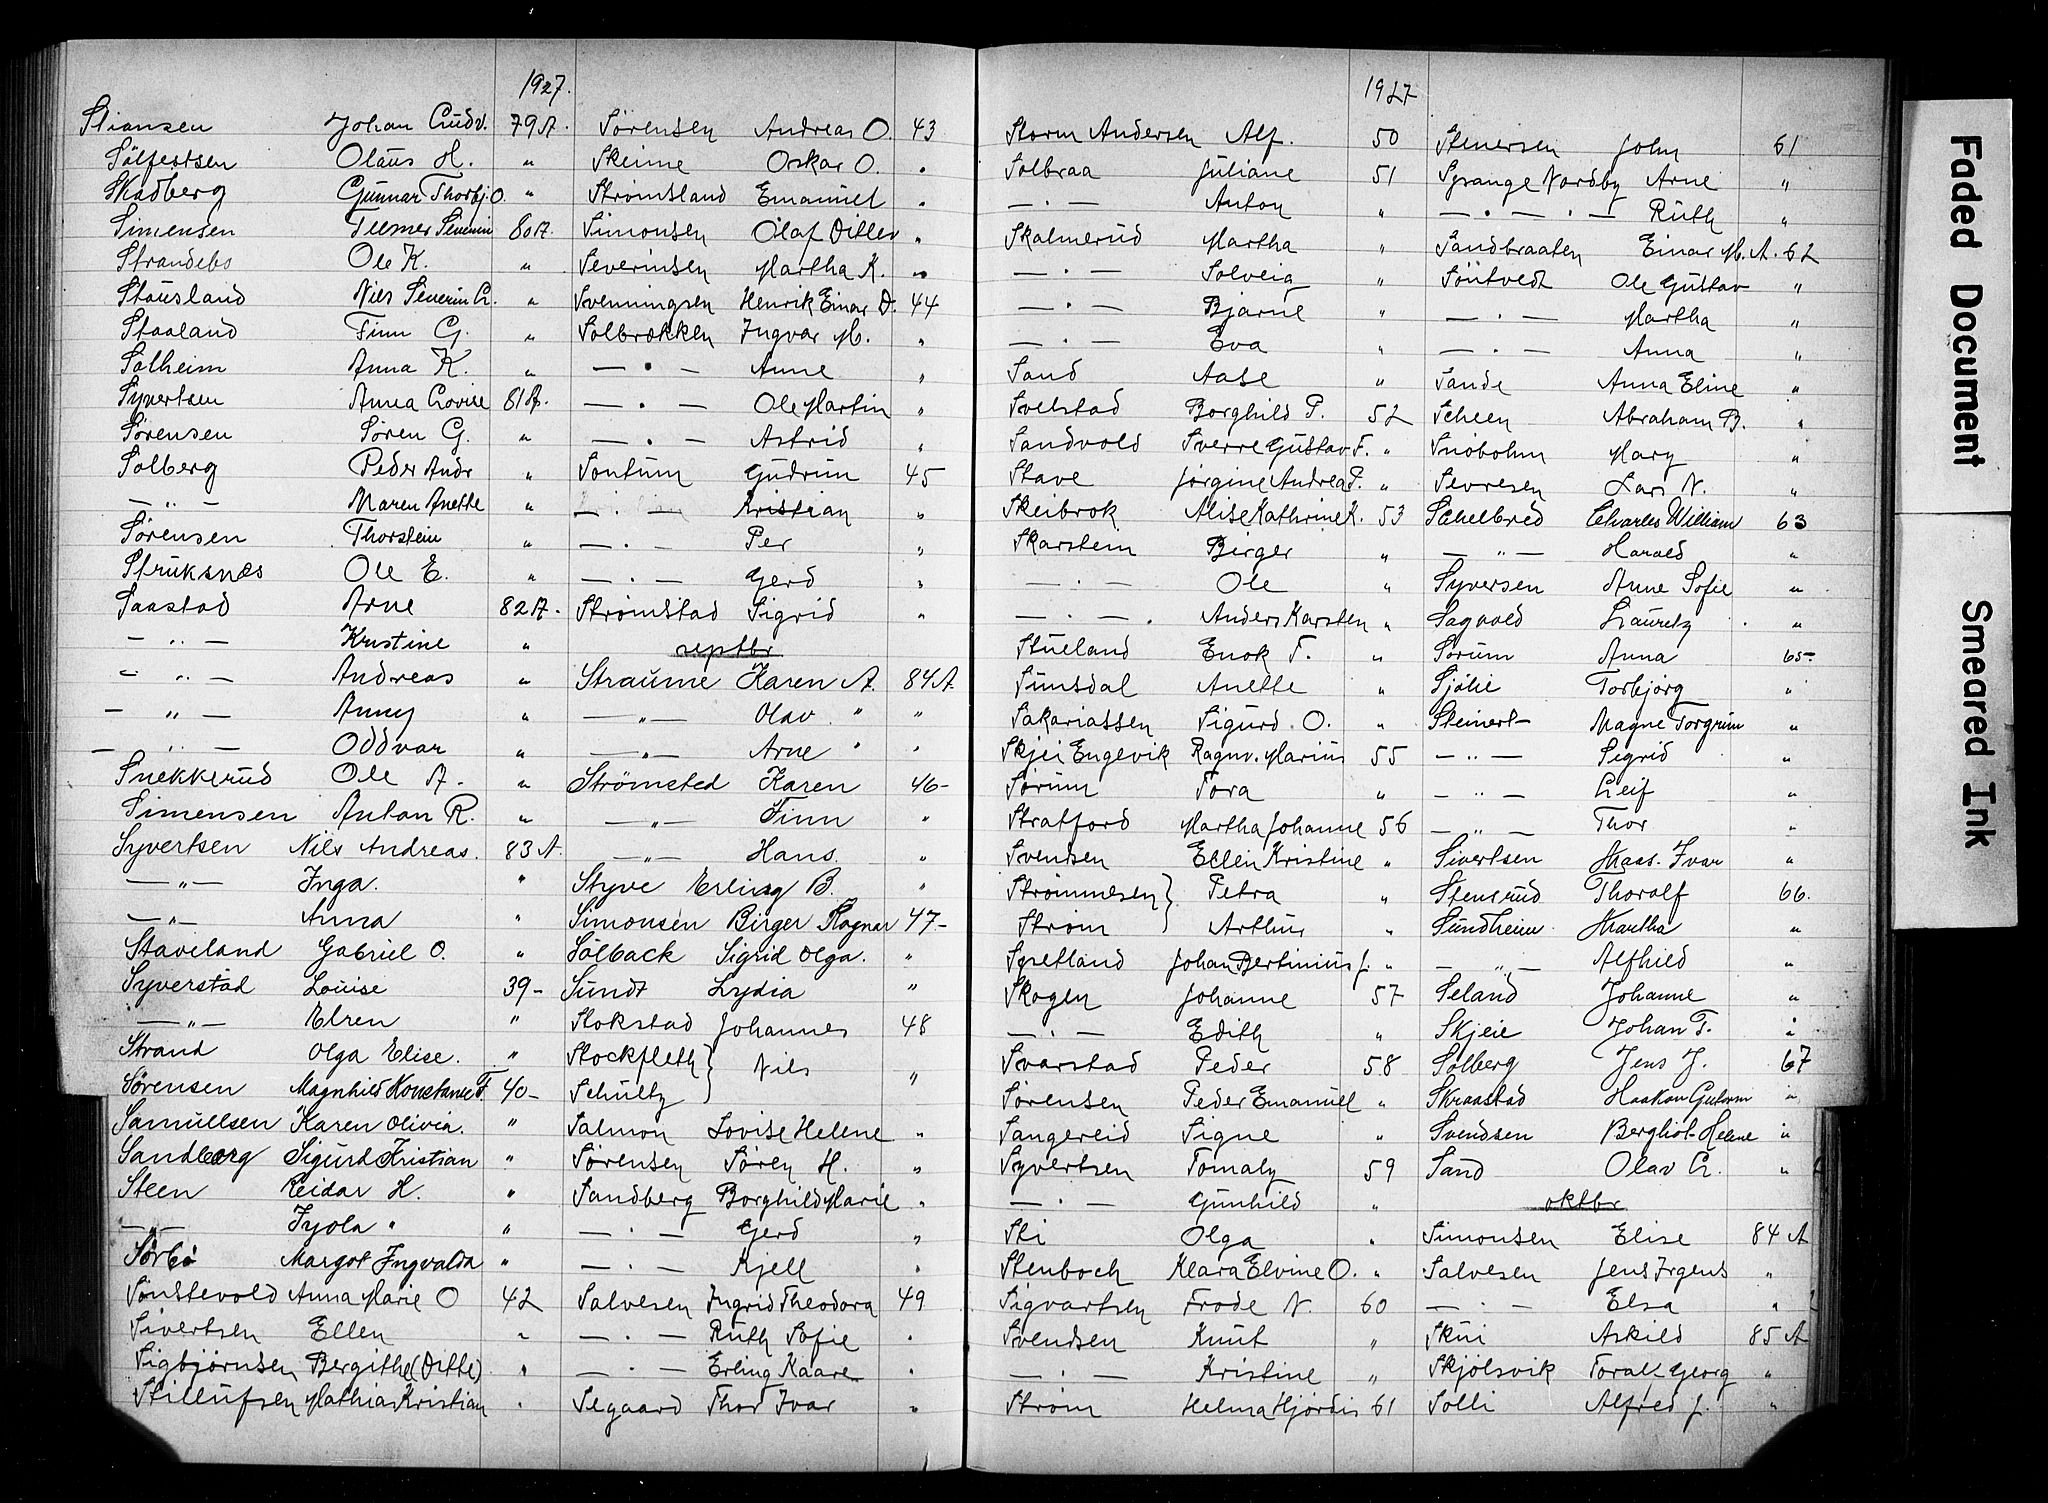 1927.
Stiansen Johan Ludv. 79A.
Sölfestsen Olaus H. "
Skadberg Gunnar Thorbj. O. "
Simensen Teemer Severin 80A.
Strandebø Ole K. "
Stausland Nils Severin L. "
Staaland Finn G. "
Solheim Anna K. "
Syvertsen Anna Lovise 81A.
Sørensen Søren G. "
Solberg Peder Andr "
— " — Maren Anette "
Sørensen Thorstein "
Struksnæs Ole E. "
Saastad Arne 82A.
— " — Kristine "
— " — Andreas "
— " — Anny "
— " — Oddvar "
Snekkerud Ole A. "
Simensen Anton R. "
Syvertsen Nils Andreas. 83A.
— " — Inga. "
— " — Anna "
Staveland Gabriel O. "
Syverstad Louise 39-
— " — Elren "
Strand Olga Elise. "
Sørensen Magnhild Konstanse F. 40-
Samuelsen Karen Olivia. "
Sandberg Sigurd Kristian "
Steen Reidar H. "
— " — Jyola " "
Sørbø Margot Ingvalda "
Sønstevold Anna Marie O 42
Sivertsen Ellen "
Sigbjørnsen Bergithe (Ditte) "
Stillufsen Mathias Kristian "
Sørensen Andreas O. 43
Skeime Oskar O. "
Strømsland Emanuel "
Simonsen Olaf Ditlev "
Severinsen Martha K. "
Svenningsen Henrik Einar D. 44
Solbrækken Ingvar M. "
— " — Anne "
— " — Ole Martin "
— " — Astrid "
Sontum Gudrun 45
— " — Kristian "
— " — Per "
— " — Gerd "
Strømstad Sigrid "
septbr
Straume Karen A. 84A.
— " — Olav " "
— " — Arne " "
Strömsted Karen 46-
— " — Finn "
— " — Hans. "
Styve Erling B. "
Simonsen Birger Ragnar 47-
Sölback Sigrid Olga. "
Sundt Lydia "
Stokstad Johannes 48
Stockfleth } Nils "
Schultz }
Salmon Lovise Helene "
Sørensen Søren H. "
Sandberg Borghild Marie "
— " — Gerd "
— " — Kjell "
Salvesen Ingrid Theodora 49
— " — Ruth Sofie "
— " — Erling Kaare "
Segaard Thor Ivar "
1927
Storm Andersen Alf. 50
Solbraa Juliane 51
— " — Anton "
Skalmerud Martha "
— " — Solveig "
— " — Bjarne "
— " — Eva "
Sand Aase "
Svelstad Borghild P. 52
Sandvold Sverre Gustav F. "
Stave Jørgine Andrea P. "
Skeibrok Alise Kathrine K. 53
Skarstein Birger "
— " — Ole "
— " — Anders Karsten "
Stueland Enok F. "
Sunsdal Anette "
Sakariassen Sigurd O. "
Skjei Engevik Ragnv. Marius 55
Sørum Tora "
Stratford Martha Johanne 56
Svendsen Ellen Kristine "
Strømmesen } Petra "
Strøm } Arthur "
Spetland Johan Bertinius J. "
Skogen Johanne 57
— " — Edith "
Svarstad Peder 58
Sørensen Peder Emanuel "
Sangereid Signe "
Syvertsen Tomaly 59
— " — Gunhild "
Sti Olga "
Stenboch Klara Elvine O. "
Sigvartsen Frode N. 60
Svendsen Knut "
— " — Kristine "
Strøm Helma Hjørdis 61
Stenersen John 61
Sprange Nordby Arne "
— " — " — Ruth "
Sandbraaten Einar M. A. 62
Söntvedt Ole Gustav "
— " — Martha "
— " — Anna "
Sande Anna Eline "
Scheen Abraham B. "
Snøbohm Mary "
Sevresen Lars N. "
Schelbred Charles William 63
— " — Harald "
Syversen Anne Sofie "
Sagvold Lauritz "
Sørum Anna 65-
Sjølie Torbjørg "
Steinert Magne Torgrim "
— " — Sigrid "
— " — Leif "
— " — Thor "
Sivertsen Haas. Ivar "
Stensrud Thoralf 66.
Sundheim Martha "
— " — Alfhild "
Seland Johanne "
Skjeie Johan T. "
Solberg Jens J. 67
Skraastad Haakon Gutorm "
Svendsen Bergliot Helene "
Sand Olav L. "
oktbr
Simonsen Elise 84 A
Salvesen Jens Irgens "
— " — Elsa "
Skui Askild 85 A
Skjølsvik Toralf Georg "
Solli Alfred J. "
Faded Document
Smeared Ink